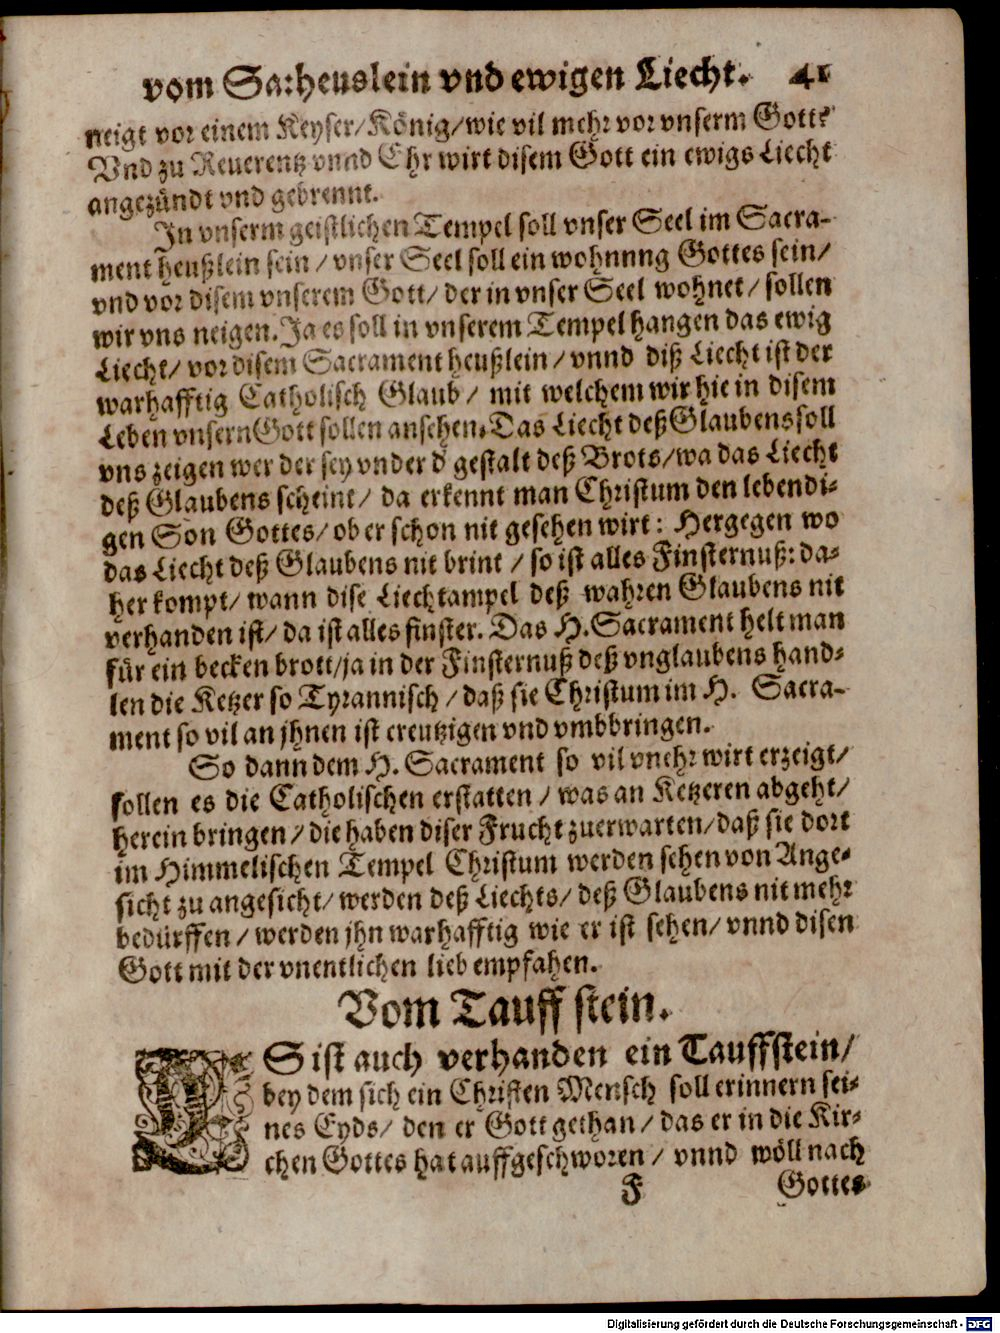 vom Sa:heuslein vnd ewigen Liecht. 41
neigt vor einem Keyser/König/wie vil mehr vor vnserm Gott?
Vnd zu Reuerentz vnnd Ehr wirt disem Gott ein ewigs Liecht
angezündt vnd gebrennt.
In vnserm geistlichen Tempel soll vnser Seel im Sacra-
ment heußlein sein / vnser Seel soll ein wohnnng Gottes sein/
vnd vor disem vnserem Gott/ der in vnser Seel wohnet/ sollen
wir vns neigen. Ja es soll in vnserem Tempel hangen das ewig
Liecht/ vor disem Sacrament heußlein/ vnnd diß Liecht ist der
warhafftig Catholisch Glaub/ mit welchem wir hie in disem
Leben vnsern Gott sollen ansehen. Das Liecht deß Glaubens soll
vns zeigen wer der sey vnder d' gestalt deß Brots/wa das Liecht
deß Glaubens scheint/ da erkennt man Christum den lebendi-
gen Son Gottes/ob er schon nit gesehen wirt: Hergegen wo
das Liecht deß Glaubens nit brint / so ist alles Finsternuß: da-
her kompt/ wann dise Liechtampel deß wahren Glaubens nit
verhanden ist/ da ist alles finster. Das H. Sacrament helt man
für ein becken brott/ja in der Finsternuß deß vnglaubens hand-
len die Ketzer so Tyrannisch / daß sie Christum im H. Sacra-
ment so vil an jhnen ist creutzigen vnd vmbbringen.
So dann dem H. Sacrament so vil vnehr wirt erzeigt/
sollen es die Catholischen erstatten / was an Ketzeren abgeht/
herein bringen / die haben diser Frucht zuerwarten/daß sie dort
im Himmelischen Tempel Christum werden sehen von Ange-
sicht zu angesicht/ werden deß Liechts/ deß Glaubens nit mehr
bedürffen / werden jhn warhafftig wie er ist sehen/ vnnd disen
Gott mit der vnentlichen lieb empfahen.
Vom Tauff stein.
ES ist auch verhanden ein Tauffstein/
bey dem sich ein Christen Mensch soll erinnern sei-
nes Eyds/ den er Gott gethan / das er in die Kir-
chen Gottes hat auffgeschworen / vnnd wöll nach
F Gottes
Digitalisierung gefördert durch die Deutsche Forschungsgemeinschaft - DFG